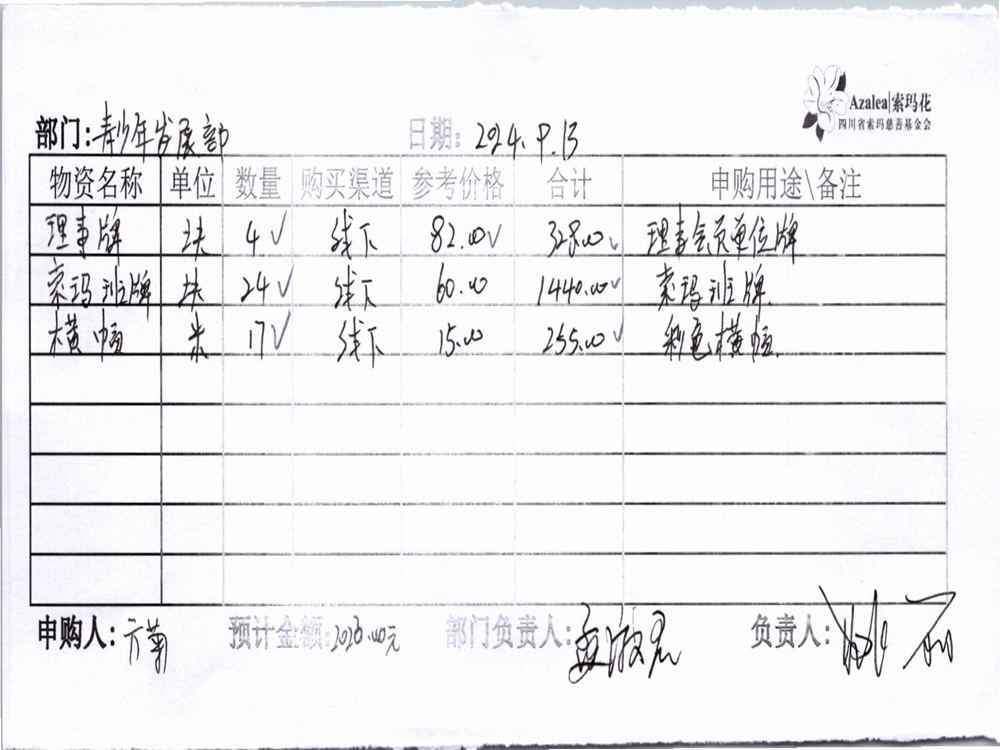 Azalea|索玛花
四川省索玛慈善基金会
部门:青少年发展部 日期: 2024.9.13
物资名称 单位 数量 购买渠道 参考价格 合计 申购用途\备注
理事牌 块 4✓ 线下 82.00✓ 328.00✓ 理事会员单位牌
索玛班牌 块 24✓ 线下 60.00 1440.00✓ 索玛班牌.
横幅 米 17✓ 线下 15.00 255.00✓ 彩色横幅.
申购人: 方菊 预计金额:2023.00元 部门负责人: 负责人: